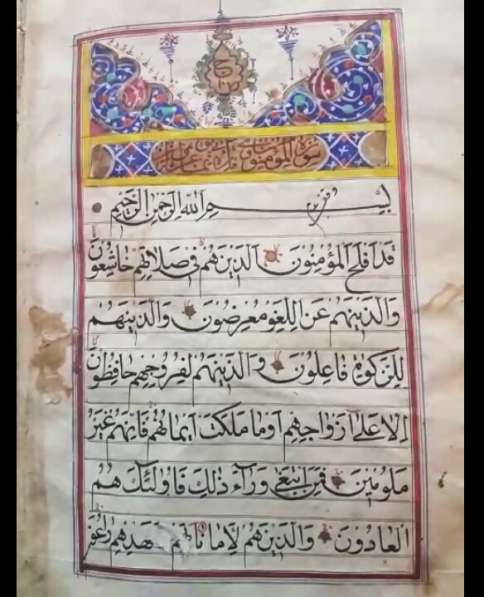 سورة المؤمنون مائة
بسم الله الرحمن الرحيم
قد افلح المؤمنون الذين هم في صلاتهم خاشعون
والذين هم عن اللغو معرضون والذين هم
للزكوة فاعلون والذين هم لفروجهم حافظون
الا على ازواجهم او ما ملكت ايمانهم فانهم غير
ملومين فمن ابتغى وراء ذلك فاولئك هم
العادون والذين هم لاماناتهم وعهدهم راعون